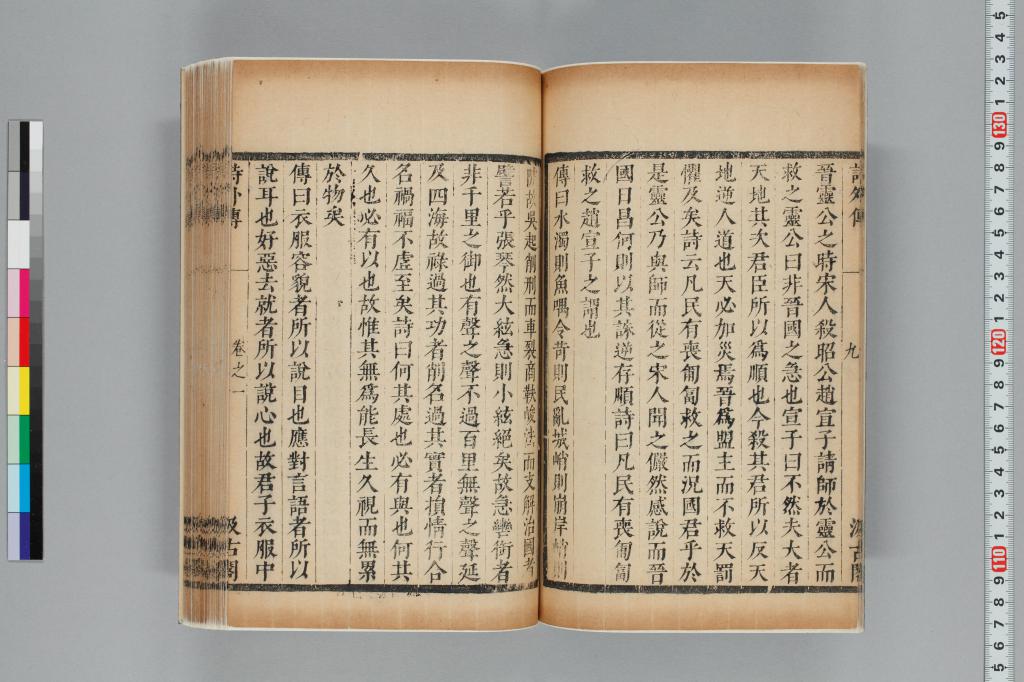 詩外傳 九 汲古閣
晉靈公之時宋人殺昭公趙宣子請師於靈公而
救之靈公曰非晉國之急也宣子曰不然夫大者
天地其次君臣所以爲順也今殺其君所以反天
地逆人道也天必加災焉晉爲盟主而不救天罰
懼及矣詩云凡民有喪匍匐救之而況國君乎於
是靈公乃與師而從之宋人聞之儼然感說而晉
國日昌何則以其誅逆存順詩曰凡民有喪匍匐
救之趙宣子之謂也
傳曰水濁則魚喁令苛則民亂城峭則崩岸峭則
陂故吳起削刑而車裂商鞅峻法而支解治國者
譬若乎張琴然大絃急則小絃絕矣故急轡銜者
非千里之御也有聲之聲不過百里無聲之聲延
及四海故祿過其功者削名過其實者損情行合
名禍福不虛至矣詩曰何其處也必有與也何其
久也必有以也故惟其無爲能長生久視而無累
於物矣
傳曰衣服容貌者所以說目也應對言語者所以
說耳也好惡去就者所以說心也故君子衣服中
詩外傳 卷之一 汲古閣
5 4 3 2 1 130 9 8 7 6 5 4 3 2 1 120 9 8 7 6 5 4 3 2 1 110 9 8 7 6 5